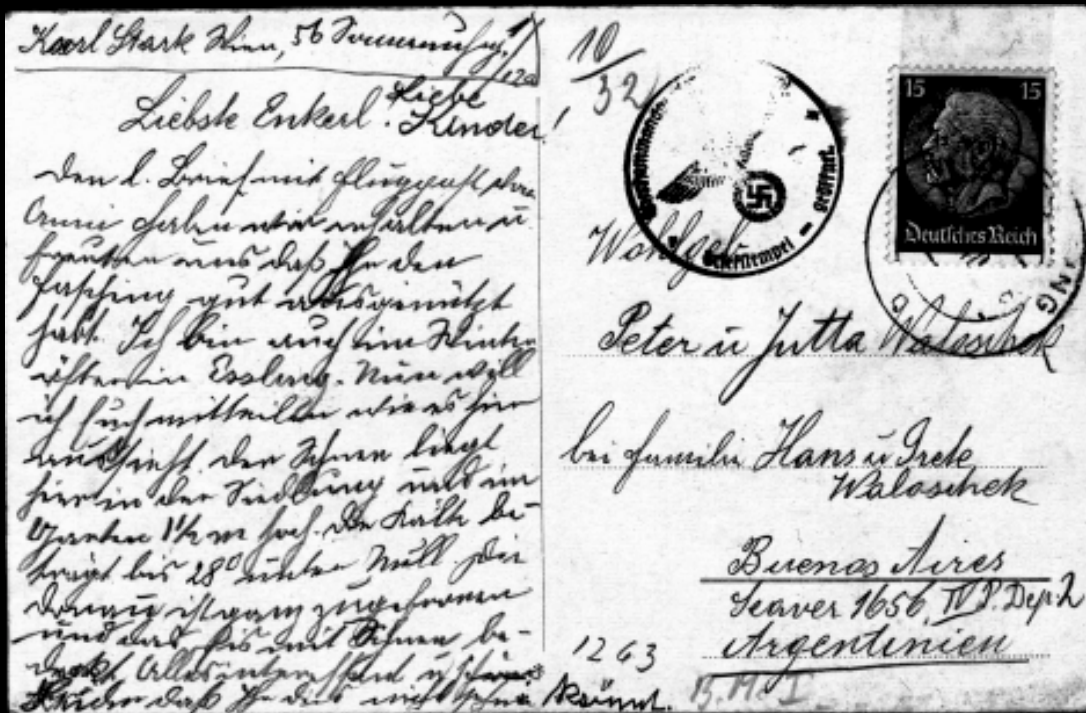 Karl Stark Wien, 56 Sonnenuhrg. 1/
Liebste Enkerl! Liebe
Kinder!
Den l. Brief mit Flugpost von
Anni haben wir erhalten u.
freuten uns daß Ihr den
Fasching gut ausgenützt
habt. Ich bin auch im Winter
öfter in Essling. Nun will
ich Euch mitteilen wie es hier
aussieht. Der Schnee liegt
hier in der Siedlung und im
Garten 1½ m hoch. Die Kälte be-
trägt bis 28° unter Null. Die
Donau ist ganz zugefroren
und das Eis mit Schnee be-
deckt. Alles interessant u. schön
daß Ihr dies nicht sehen könnt.
10/32
15 15
Deutsches Reich
Briefstempel
geöffnet
NG
Peter u Jutta Waloschek
bei Familie Hans u Grete
Waloschek
Buenos Aires
Seaver 1656 IV P. Dep. 2
Argentinien
1263